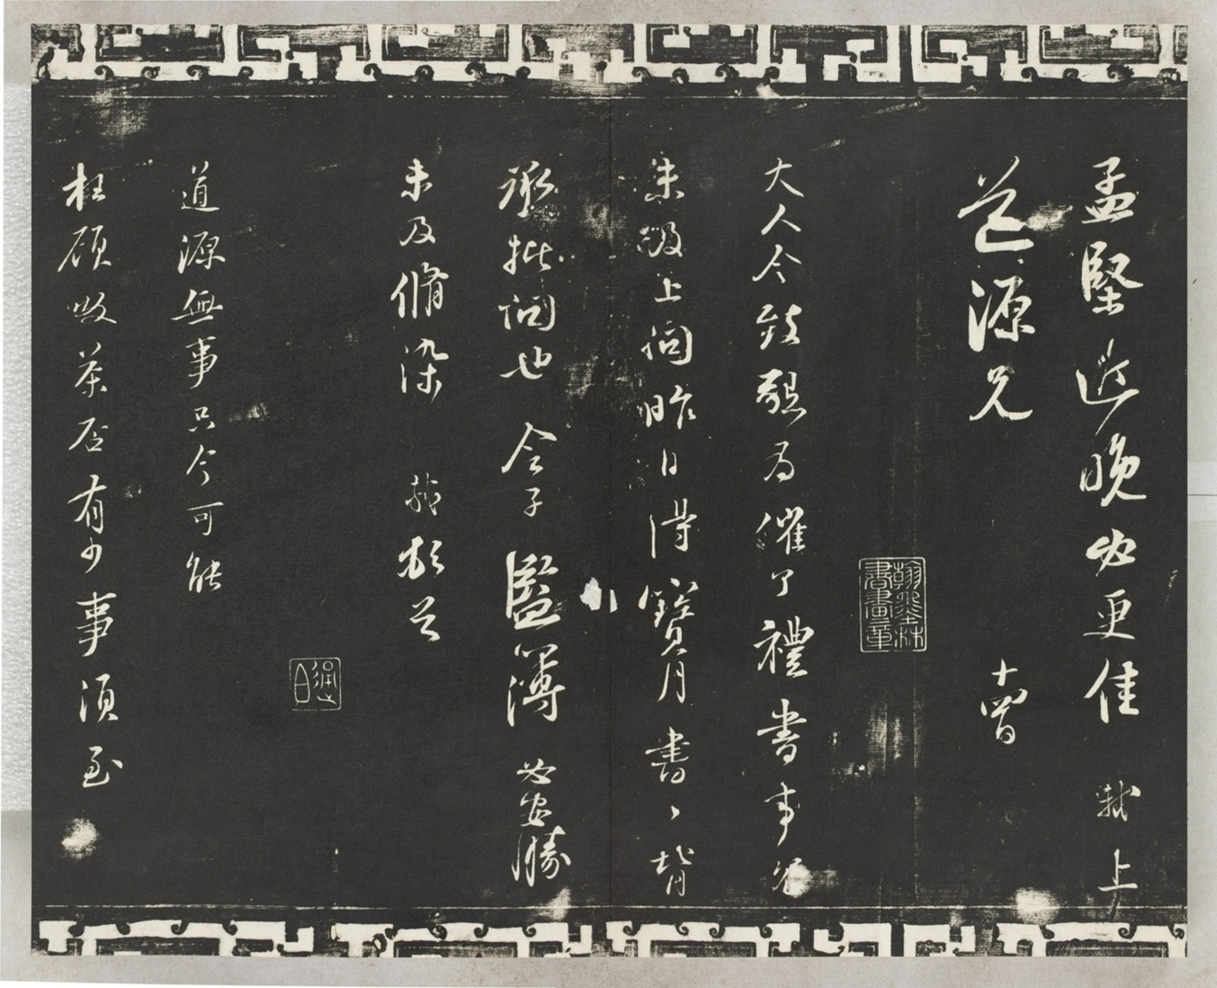 孟堅近晚必更佳 軾上
道源兄 十四日
翰墨林書畫章
大人令致懇為催了禮書事冗
未及上問昨日得寶月書〻背
承批問也令子監簿必安勝
未及脩染 軾頓首
道源無事只今可能
枉顧啜茶否有少事須至